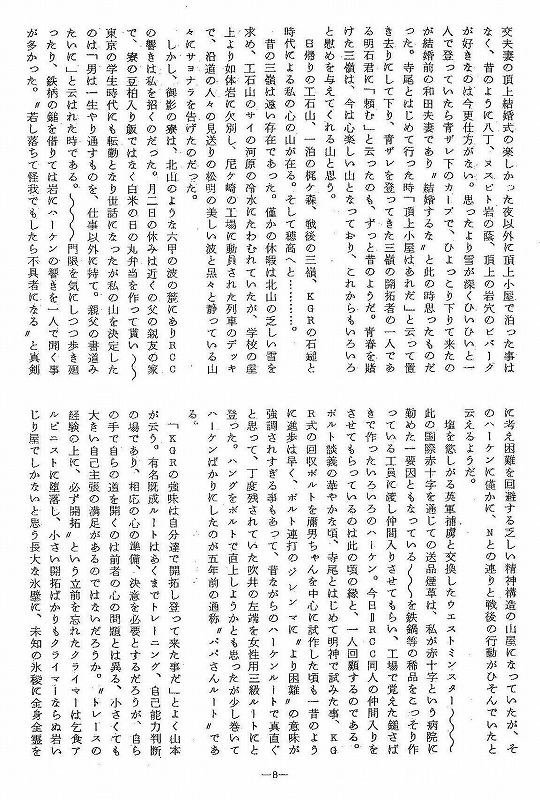 交夫妻の頂上結婚式の楽しかった夜以外に頂上小屋で泊った事は
なく、昔のように八丁、ヌスビト岩の蔭、頂上の岩穴のビバーグ
が好きなのは今更仕方がない。思ったより雪が深くひいひいと一
人で登っていたら青ザレ下のカーブで、ひょっこり下りて来たの
が結婚前の和田夫妻であり〝結婚するな〟と此の時思ったものだ
った。寺尾とはじめて行った時「頂上小屋はあれだ」と云って置
き去りにして下り、青ザレを登ってきた三嶺の開拓者の一人であ
る明石君に「頼む」と云ったのも、ずっと昔のようだ。青春を賭
けた三嶺は、今は心楽しい山となっており、これからもいろいろ
と慰めを与えてくれる山と思う。
日帰りの工石山、一泊の梶ケ森、戦後の三嶺、KGRの石鎚と
時代による私の心の山が在る。そして穂高へと…………。
昔の三嶺は遠い存在であった。僅かの休暇は北山の乏しい雪を
求め、工石山のサイの河原の冷水にたわむれていたが、学校の屋
上より如体岩に欠別し、尼ケ崎の工場に動員された列車のデッキ
で、沿道の人々の見送りの松明の美しい波と黒々と静っている山
々にサヨナラを告げたのだった。
しかし、御影の寮は、北山のような六甲の波の蔭にありRCC
の響きは私を招くのだった。月二日の休みは近くの父の親友の家
で、寮の豆粕入り飯ではなく白米の日の丸弁当を作って貰い〜〜
東京の学生時代にも転動となり世話になったが私の山を決定した
のは「男は一生やり通すものを、仕事以外に持て。親父の書道み
たいに」と云はれた時である。〜〜〜門限を気にしつつ歩き廻
ったり、鉄柄の鎚を借りては岩にハーケンの響きを一人で聞く事
が多かった。〝若し落ちて怪我でもしたら不具者になる〟と真剣
に考え困難を回避する乏しい精神構造の山屋になっていたが、そ
のハーケンに僅かに、Nとの連りと戦後の行動がひそんでいたと
云えるようだ。
塩を慾しがる英軍捕虜と交換したウエストミンスター〜〜〜
此の国際赤十字を通じての送品煙草は、私が赤十字という病院に
勤めた一要因ともなっている〜〜〜を鉄鍋等の稀品をこっそり作
っている工員に渡し仲間入りさせてもらい、工場で覚えた鎚さば
きで作ったいろいろのハーケン。今日〝RCC同人の仲間入りを
させてもらっているのは此の頃の縁と、一人回顧するのである。
ボルト談義の華やかな頃、寺尾とはじめて明神で試みた事、KG
R式の回収ボルトを彌男ちゃんを中心に試作した頃も一昔のよう
に進歩は早く、ボルト連打のジレンマに〝より困難〟の意味が
強調されすぎる事もあって、昔ながらのハーケンルートで真直ぐ
と思って、丁度残されていた吹井の左端を女性用三級ルートにと
登った。ハングをボルトで直上しようかとも思ったが少し巻いて
ハーケンばかりにしたのが五年前の通称〝パパさんルート〟であ
る。
「KGRの強味は自分達で開拓し登って来た事だ」とよく山本
が云う。有名既成ルートはあくまでトレーニング、自己能力判断
の場であり、相応の心の準備、決意を必要とするだろうが、自ら
の手で自らの道を開くのは前者の心の問題とは異る、小さくても
大きい自己主張の満足があるのではないだろうか。〝トレースの
経験の上に、必ず開拓〟という立前を忘れたクライマーは乞食ア
ルピニストに堕落し、小さい開拓ばかりもクライマーならぬ岩い
じり屋でしかないと思う長大な氷壁に、未知の氷稜に全身全霊を
—8—